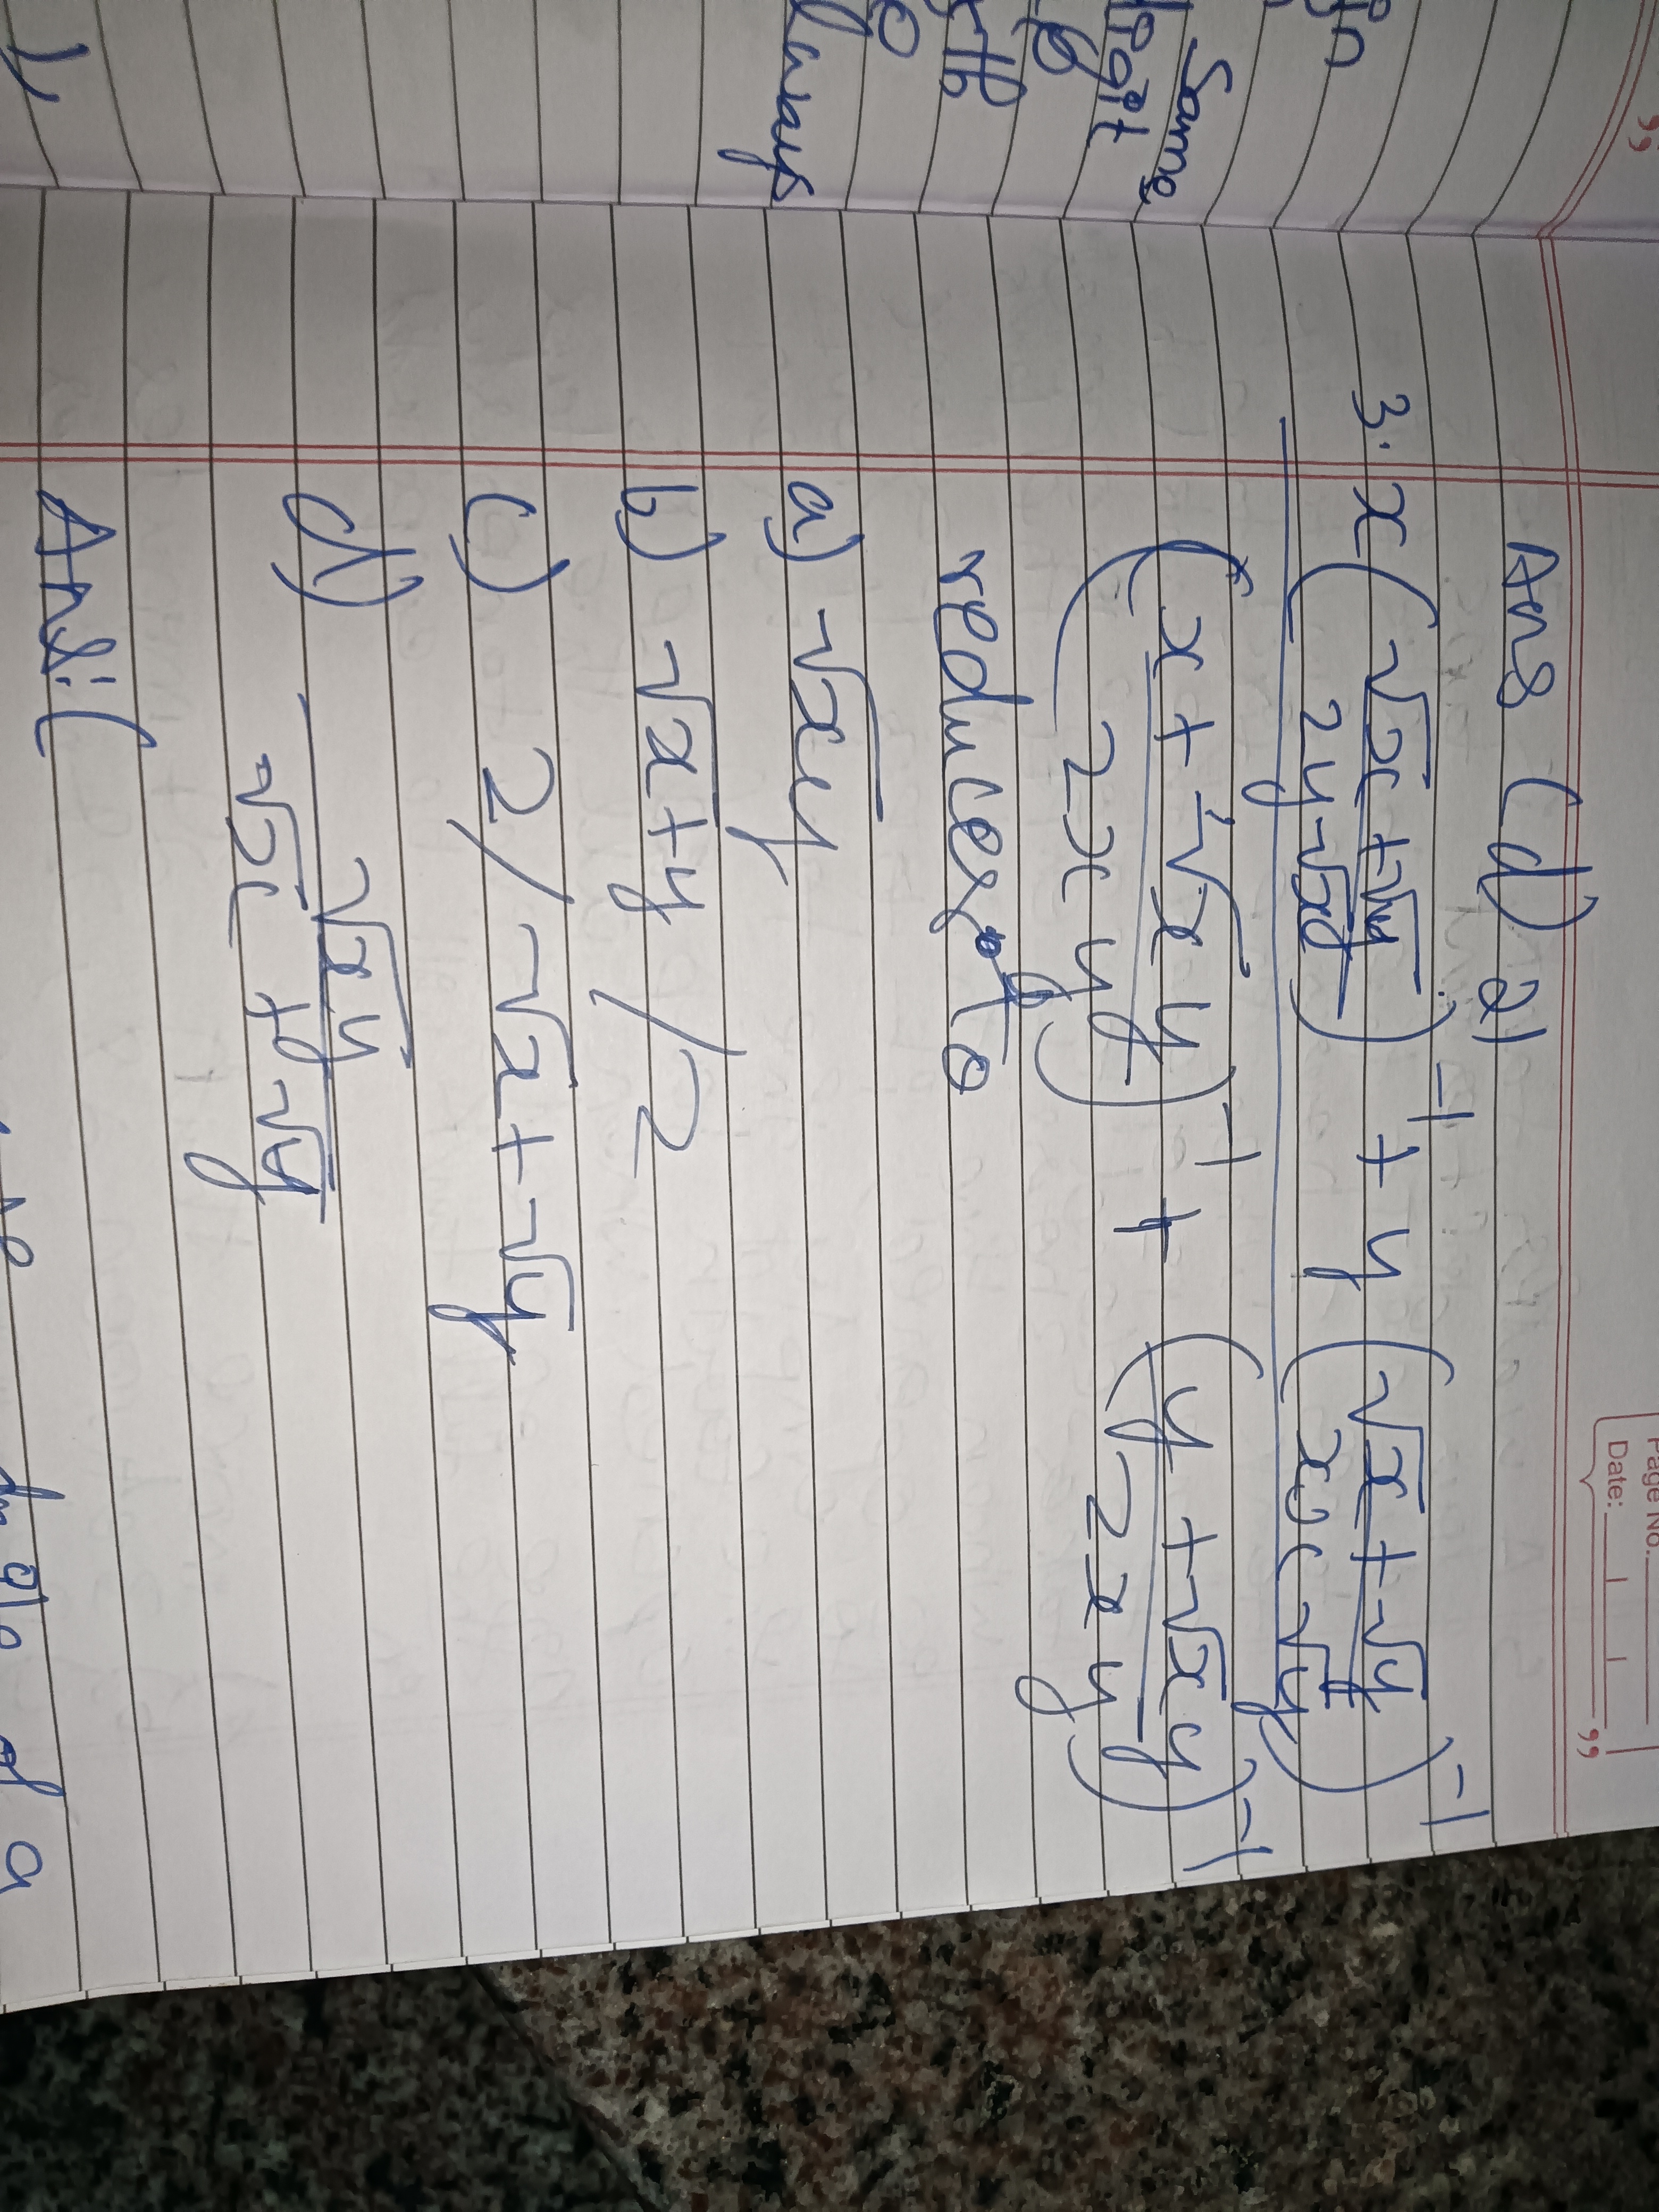 Page No.
Date:
Ans (d) 21
3. x (√x + √y / 2y√x)⁻¹ + y (√x + √y / x √y)⁻¹
(x + √xy / 2xy)⁻¹ + (y + √xy / 2xy)⁻¹
reduces to
a) √xy
b) √x+y /2
c) 2/√x+√y
d) √xy / √x + √y
Ans: (
Same
digit
always